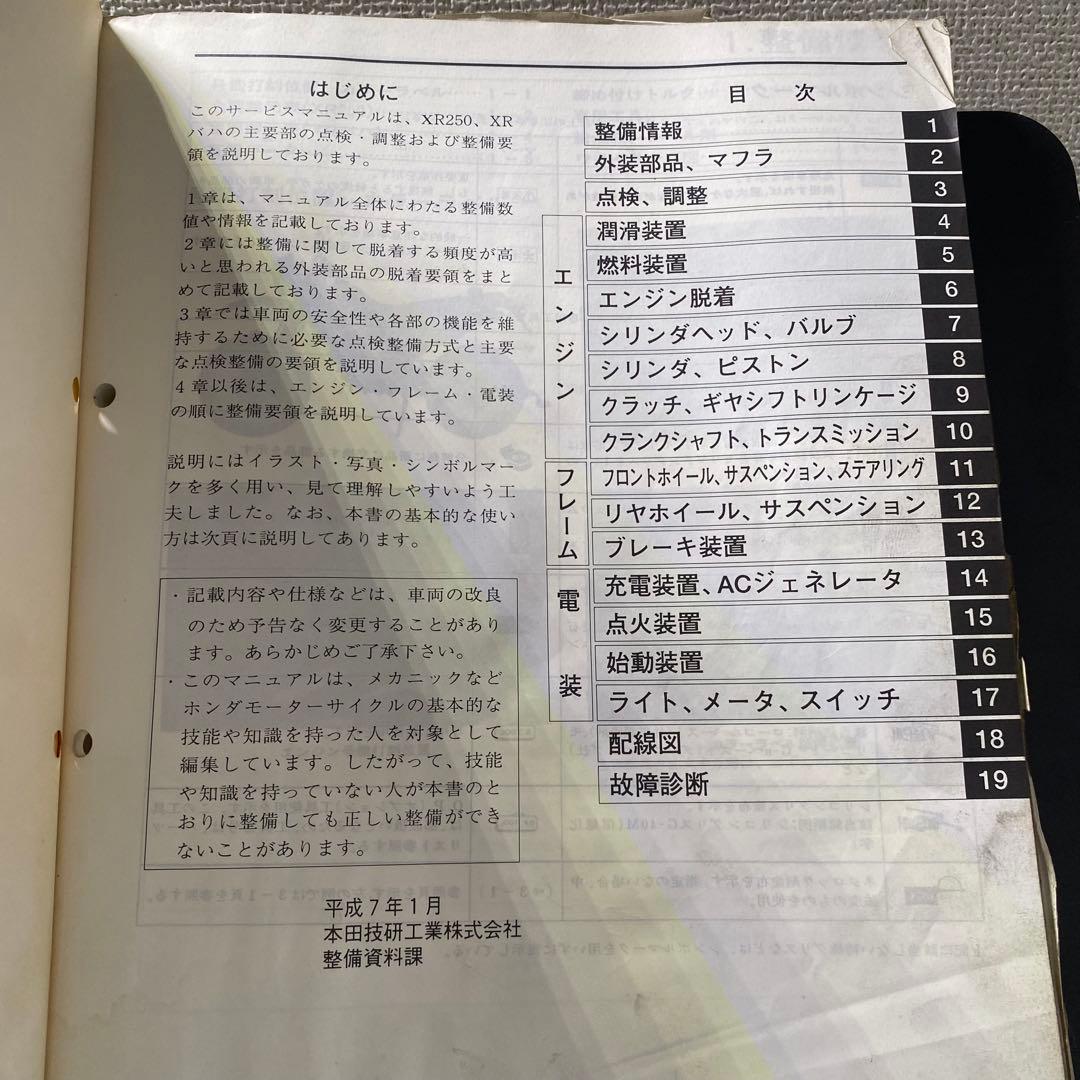 はじめに
このサービスマニュアルは、XR250、XR
バハの主要部の点検・調整および整備要
領を説明しております。
1章は、マニュアル全体にわたる整備数
値や情報を記載しております。
2章には整備に関して脱着する頻度が高
いと思われる外装部品の脱着要領をまと
めて記載しております。
3章では車両の安全性や各部の機能を維
持するために必要な点検整備方式と主要
な点検整備の要領を説明しています。
4章以後は、エンジン・フレーム・電装
の順に整備要領を説明しています。
説明にはイラスト・写真・シンボルマー
クを多く用い、見て理解しやすいよう工
夫しました。なお、本書の基本的な使い
方は次頁に説明してあります。
・記載内容や仕様などは、車両の改良
のため予告なく変更することがあり
ます。あらかじめご了承下さい。
・このマニュアルは、メカニックなど
ホンダモーターサイクルの基本的な
技能や知識を持った人を対象として
編集しています。したがって、技能
や知識を持っていない人が本書のと
おりに整備しても正しい整備ができ
ないことがあります。
平成7年1月
本田技研工業株式会社
整備資料課
目 次
整備情報 1
外装部品、マフラ 2
点検、調整 3
エンジン
潤滑装置 4
燃料装置 5
エンジン脱着 6
シリンダヘッド、バルブ 7
シリンダ、ピストン 8
クラッチ、ギヤシフトリンケージ 9
クランクシャフト、トランスミッション 10
フレーム
フロントホイール、サスペンション、ステアリング 11
リヤホイール、サスペンション 12
ブレーキ装置 13
電装
充電装置、ACジェネレータ 14
点火装置 15
始動装置 16
ライト、メータ、スイッチ 17
配線図 18
故障診断 19